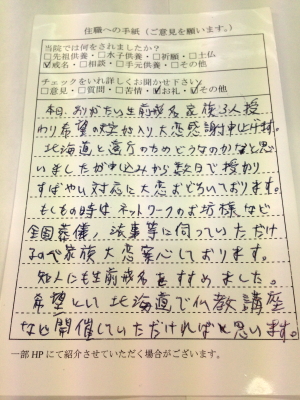 住職への手紙(ご意見を願います。)
当院では何をされましたか?
□先祖供養・□水子供養・□祈願・□土仏
☑戒名・□相談・□手元供養・□その他
チェックをいれ詳しくお聞かせ下さい
□意見・□質問・□苦情・☑お礼・☑その他
本日、ありがたい生前戒名家族3人授
わり希望の文字が入り大恋感謝申し上げます。
北海道と遠方のためどうなのかなと思い
ましたが申込みから数日で授かり
すばやい対応に大恋おどろいております。
もしもの時はネットワークのお坊様など
全国葬儀、法事等に伺っていただけ
るので家族大恋安心しております。
知人にも生前戒名をすすめました。
希望とし 北海道で仏教講座
など開催していただければと思います。
一部HPにて紹介させていただく場合がございます。